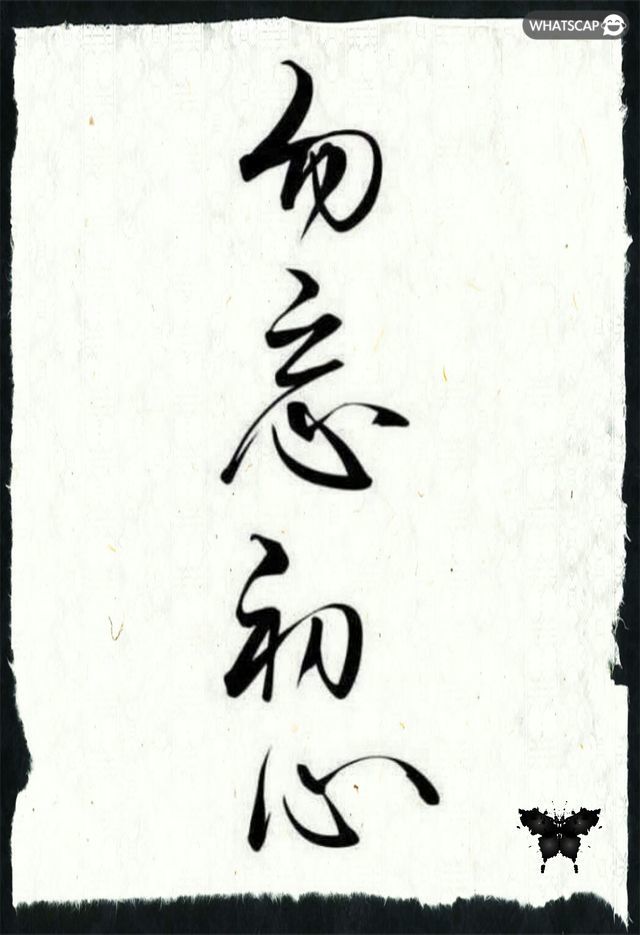 WHATSCAP
勿忘初心